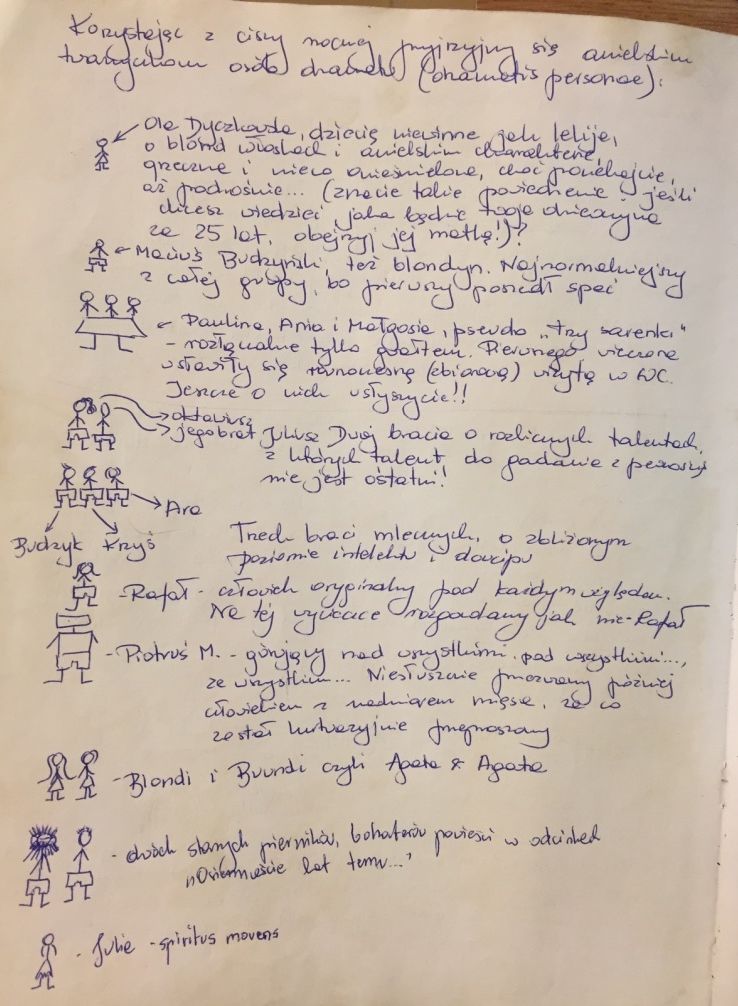 Korzystając z ciszy nocnej przyjrzyjmy się anielskim
twarzyczkom osób dramatu (dramatis personae):
Ola Dyczkowska, dziecię niewinne jak lelije,
o blond włoskach i anielskim charakterze,
grzeczne i nieco onieśmielone, choć poczekajcie,
aż podrośnie... (znacie takie powiedzenie "jeśli
chcesz wiedzieć jaka będzie twoja dziewczyna
za 25 lat, obejrzyj jej matkę!)?
Maciuś Budzyński, też blondyn. Najnormalniejszy
z całej grupy, bo pierwszy poszedł spać
Paulina, Ania i Małgosia, pseudo "trzy sarenki"
- rozłączalne tylko gwałtem. Pierwszego wieczora
ustawiły się równoczesną (zbiorową) wizytą w WC.
Jeszcze o nich usłyszycie!!
oktawiusz
jego brat Juliusz Dwaj bracia o rozlicznych talentach,
z których talent do gadania z
nie jest ostatni!
Ara
Budzyk Krzyś
Trzech braci mlecznych, o zbliżonym
poziomie intelektu i dowcipu
- Rafał - człowiek oryginalny pod każdym względem.
Na tej wycieczce rozgadany jak nie-Rafał
- Piotruś M. - górujący nad wszystkimi, pod wszystkimi...,
ze wszystkim... Niesłusznie przezwany później
człowiekiem z nadmiarem mięsa, za co
został kurtuazyjnie przeproszony
- Blondi i Bruundi czyli Agata & Agata
- dwóch starych pierników, bohaterów powieści w odcinkach
"Osiemnaście lat temu..."
- Julia - spiritus movens